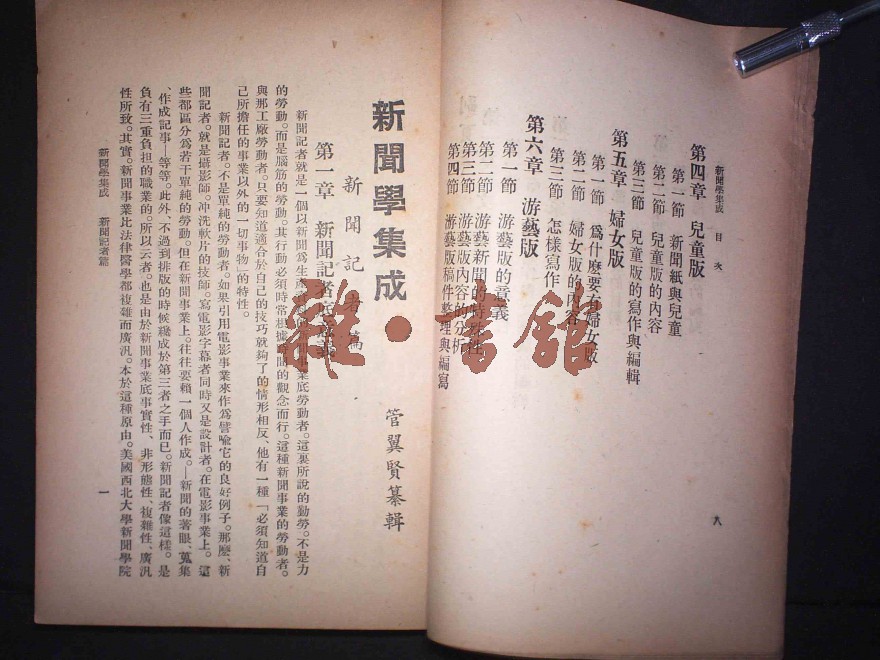 新聞學集成 目次
第四章 兒童版
第一節 新聞紙與兒童
第二節 兒童版的內容
第三節 兒童版的寫作與編輯
第五章 婦女版
第一節 爲什麼要有婦女版
第二節 婦女版的內容
第三節 怎樣寫作
第六章 游藝版
第一節 游藝版的意義
第二節 游藝新聞的特殊性
第三節 游藝版內容的分析
第四節 游藝版稿件整理與編寫
八
新聞學集成
管翼賢纂輯
新聞記者篇
第一章 新聞記者
新聞記者就是一個以新聞爲生產 事業底勞動者。這裏所說的勤勞。不是力
的勞動。而是腦筋的勞動。其行動必須時常根據 的觀念而行。這種新聞事業的勞動者。
與那工廠勞動者。只要知道適合於自己的技巧就夠了的情形相反、他有一種「必須知道自
己所擔任的事業以外的一切事物」的特性。
新聞記者。不是單純的勞動者。如果引用電影事業來作爲譬喻它的良好例子。那麼、新
聞記者。就是攝影師。冲洗軟片的技師。寫電影字幕者同時又是設計者。在電影事業上。這
些都區分爲若干單純的勞動。但在新聞事業上。往往要賴一個人作成。—新聞的著眼、蒐集
、作成記事—等等。此外、不過到排版的時候纔成於第三者之手而已。新聞記者像這樣。是
負有三重負担的職業的。所以云者。也是由於新聞事業底事實性、非形態性、複雜性、廣汎
性所致。其實。新聞事業比法律醫學都複雜而廣汎。本於這種原由。美國西北大學新聞學院
新聞學集成 新聞記者篇
一
雜·書館